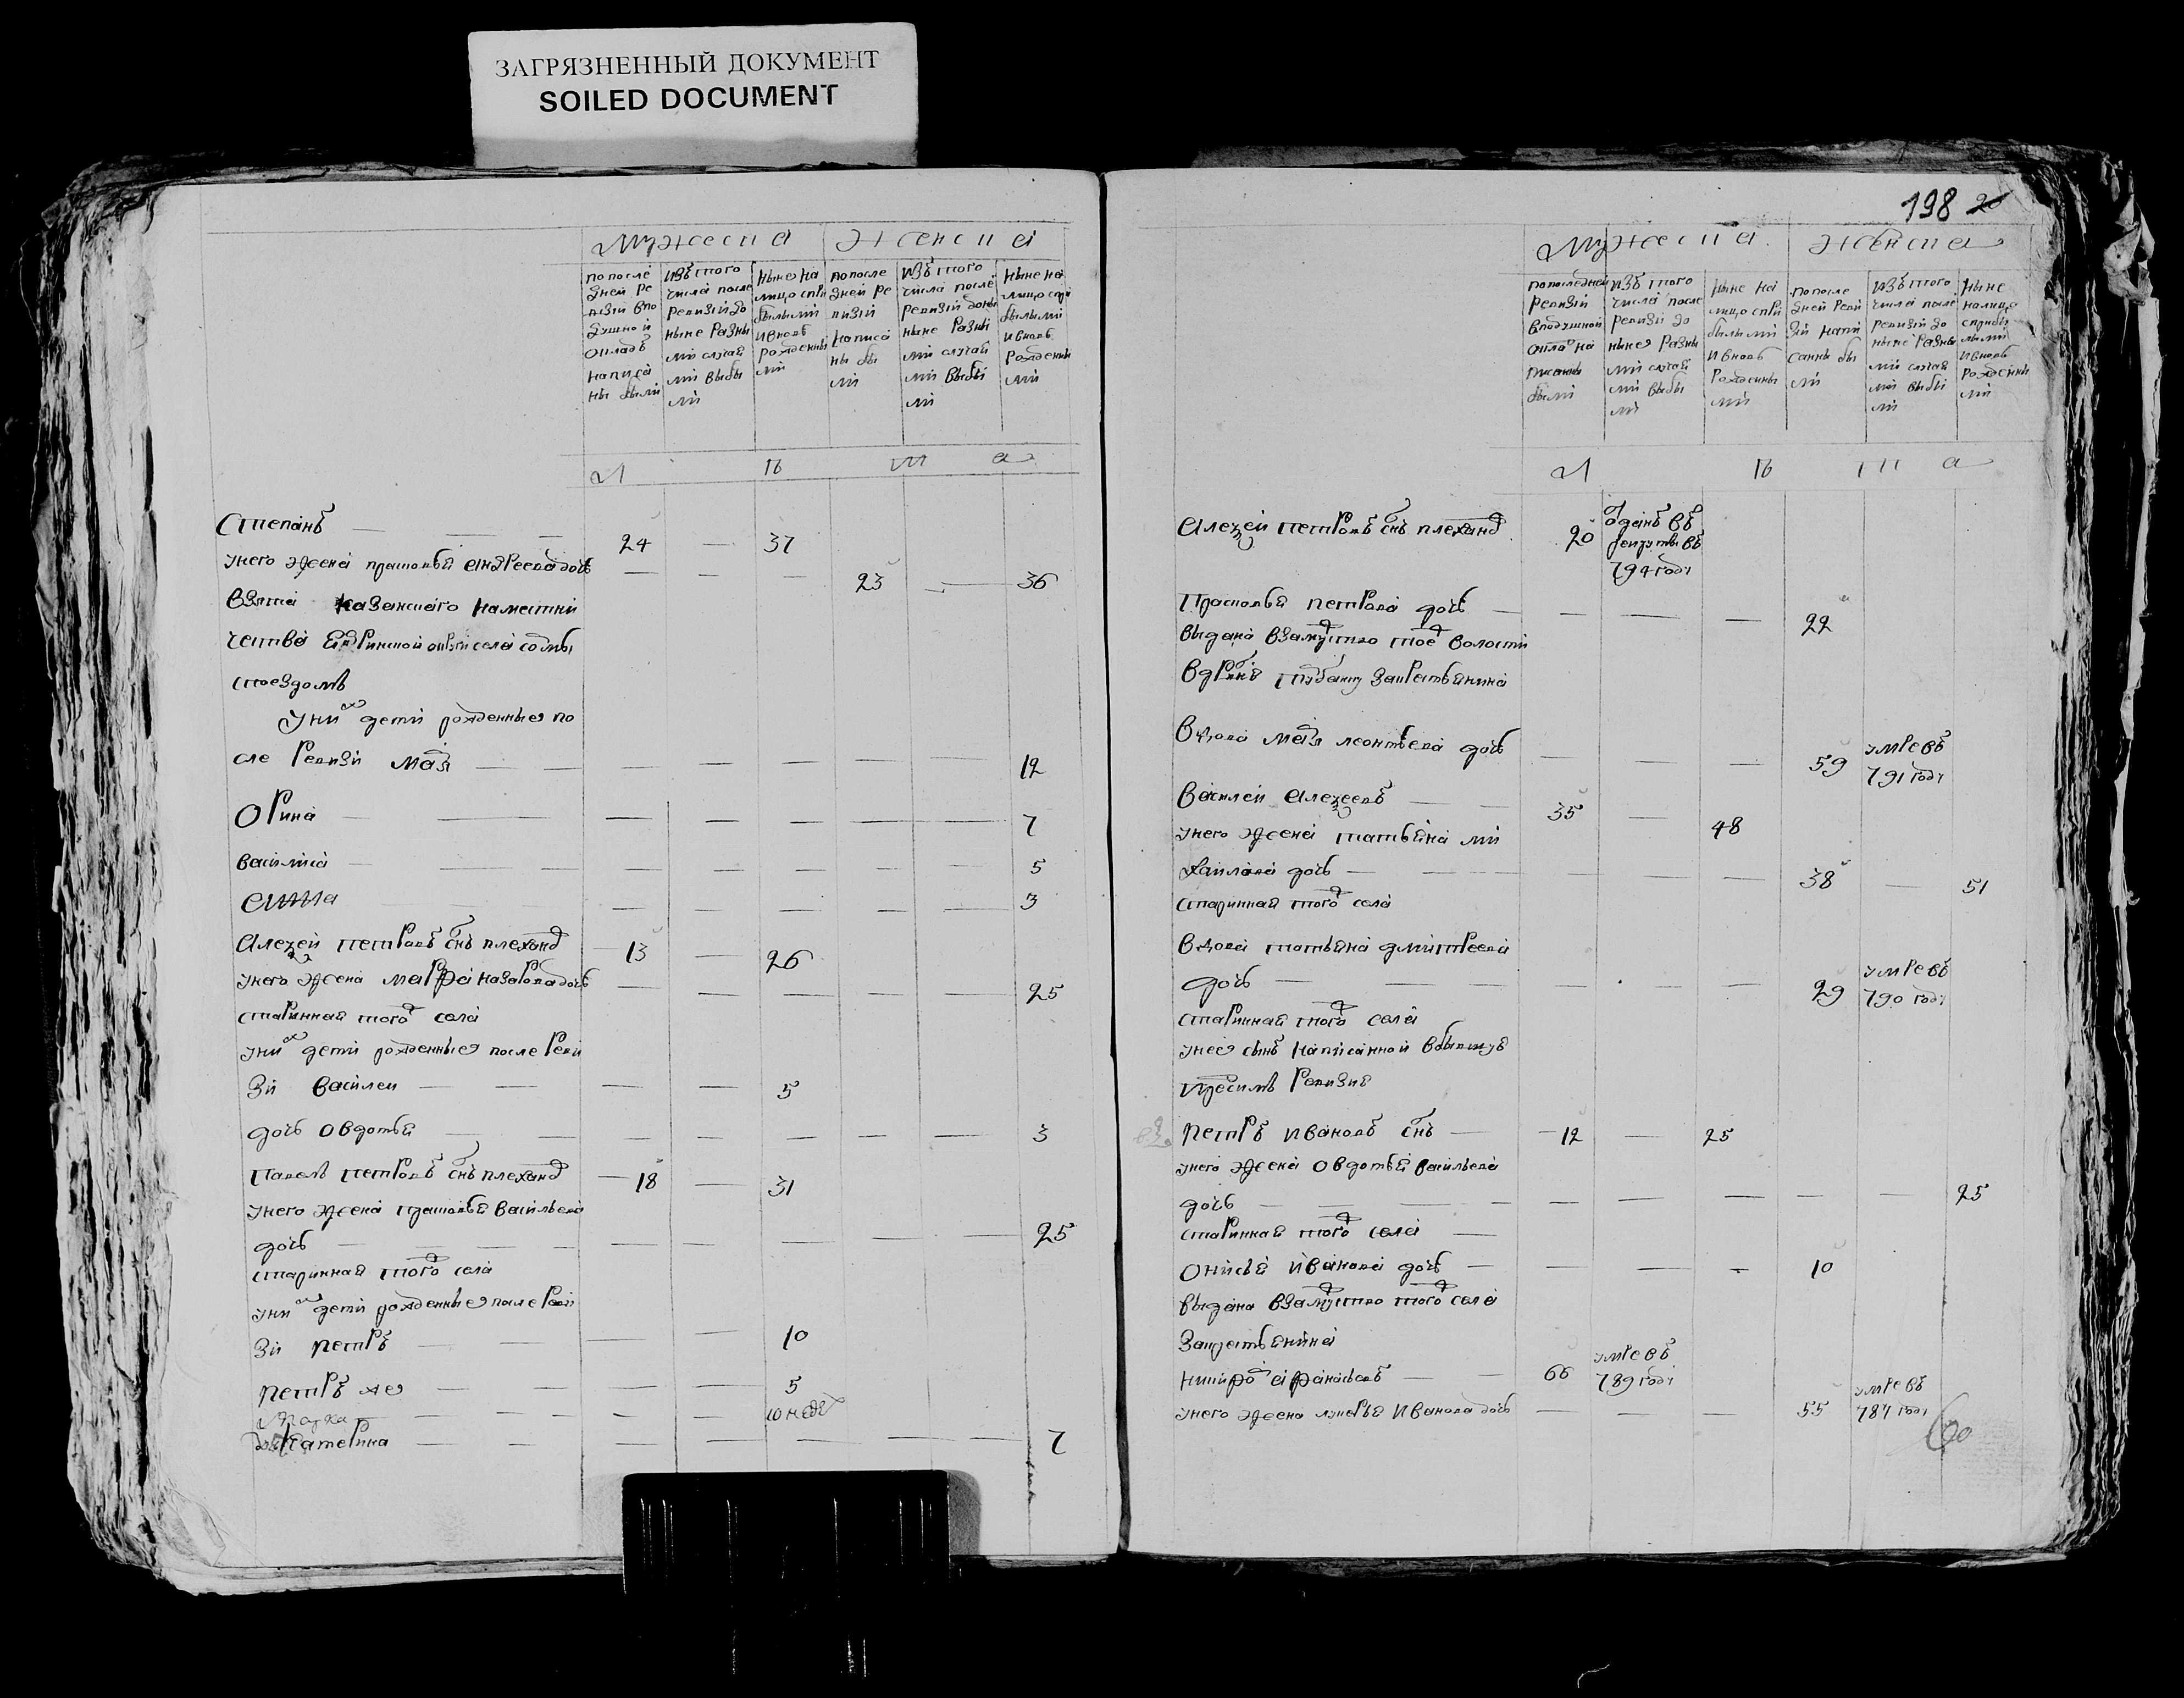 ЗАГРЯЗНЕННЫЙ ДОКУМЕНТ
SOILED DOCUMENT
мужеска женска
по после дней ревизии в подушной оклад написаны были
из того числа после ревизии до ныне разными случаи выбыли
ныне на лицо с прибылыми и вновь рожденными
по после дней ревизии написаны были
из того числа после ревизии до ныне разными случаи выбыли
ныне на лицо с прибылыми и вновь рожденными
л ѣ т а
Степанъ — — — 24 — 37
у него жена прасковья андреева дочь — — — 23 — 36
взята казанскаго наместни
чества ядринской округи села
споездомъ
у них дети рожденные по
сле ревизи маря — — — — — — — 12
Орина — — — — — — — 7
василиса — — — — — — — 5
анна — — — — — 3
алексей петровъ снъ плеханов 13 — 26
у него жена марфа назарова дочь — — — — — 25
старинная того села
у них дети рожденные после реви
зи василеи — — — — 5
дочь овдотья — — — — — — 3
Павелъ петровъ снъ плеханов — 18 — 31
у него жена прасковья васильева
дочь — — — — — — — 25
старинная того села
у них дети рожденные после реви
зи петръ — — — — 10
петръ же — — — — 5
марка — — — — 10 нед
катерина — — — — — — — 7
198 20
мужеска женска
по последней ревизии в подушной оклад написаны были
из того числа после ревизи до ныне разными случаи выбыли
ныне на лицо с прибылыми и вновь рожденными
по после дней ревизи написаны были
из того числа после ревизи до ныне разными случаи выбыли
ныне на лицо с прибылыми и вновь рожденными
л ѣ т а
алексей петровъ снъ плеханов 20 отданъ въ рекруты въ 794 году
Прасковья петрова дочь — — — — 22
выдана взамужство тое волости
в дрвню за крестьянина
вдова маря леонтьева дочь — — — 59 умре въ 791 году
василеи алексеевъ — — 35 — 48
у него жена татьяна ми
хаилова дочь — — — — — — 38 — 51
старинная того села
вдова татьяна дмитреева
дочь — — — — — — 29 умре въ 790 году
старинная того села
у нее сынъ написанной в бывшую
пред симъ ревизию
петръ ивановъ снъ — — 12 — 25
у него жена овдотья васильева
дочь — — — — — — — — 25
старинная того села —
Онисья иванова дочь — — — — 10
выдана взамужство того села
за крестьянина
никифоръ афанасьевъ — — 66 умре въ 789 году
у него жена лукерья иванова дочь — — — 55 умре въ 787 году
60